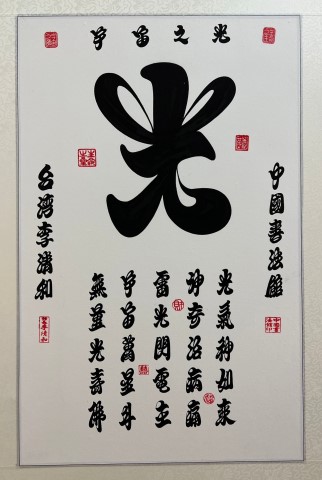 宇宙之光
光
中國書法館
光氣如來
神奇治病痛
雷光閃電在
宇宙萬星斗
無量光壽佛
台湾李清和